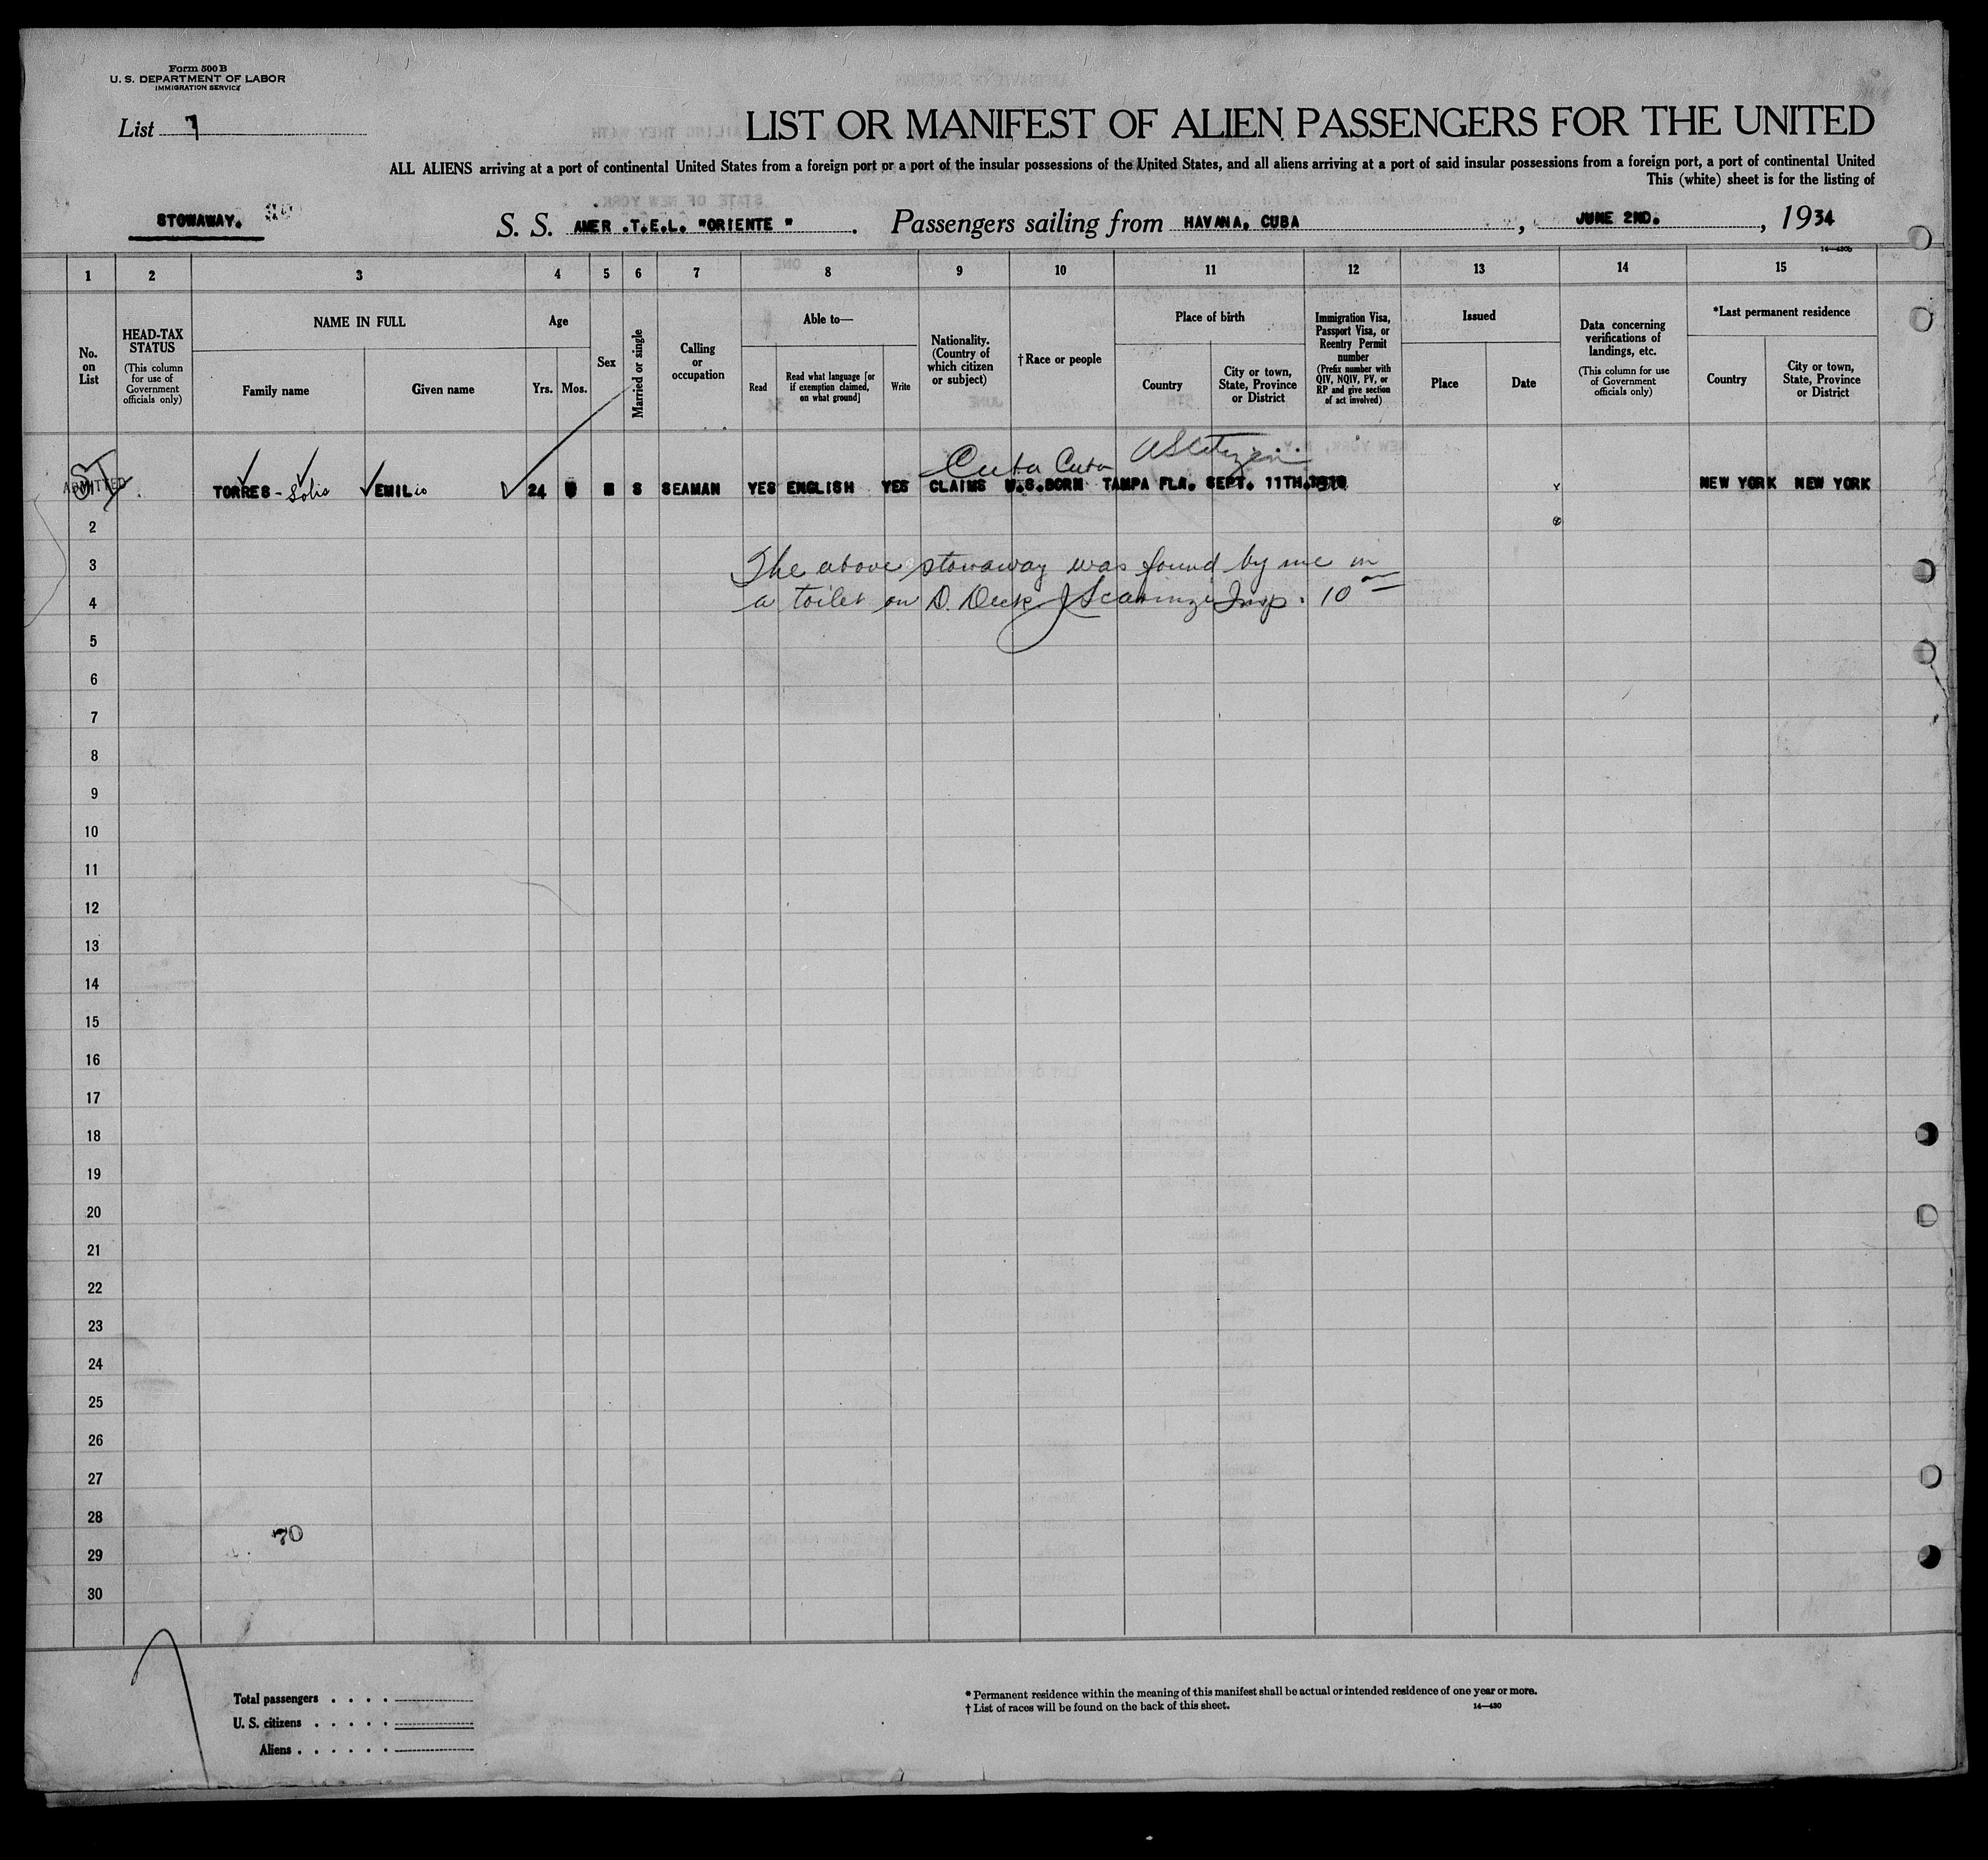 Form 500 B
U. S. DEPARTMENT OF LABOR
IMMIGRATION SERVICE
List 7
LIST OR MANIFEST OF ALIEN PASSENGERS FOR THE UNITED
ALL ALIENS arriving at a port of continental United States from a foreign port or a port of the insular possessions of the United States, and all aliens arriving at a port of said insular possessions from a foreign port, a port of continental United
This (white) sheet is for the listing of
STOWAWAY.
S. S. AMER .T.E.L. "ORIENTE " . Passengers sailing from HAVANA, CUBA , JUNE 2ND. , 1934
14—430b
1 2 3 4 5 6 7 8 9 10 11 12 13 14 15
No. on List
HEAD-TAX STATUS
(This column for use of Government officials only)
NAME IN FULL
Family name
Given name
Age
Yrs. Mos.
Sex
Married or single
Calling or occupation
Able to—
Read
Read what language [or if exemption claimed, on what ground]
Write
Nationality. (Country of which citizen or subject)
† Race or people
Place of birth
Country
City or town, State, Province or District
Immigration Visa, Passport Visa, or Reentry Permit number
(Prefix number with QIV, NQIV, PV, or RP and give section of act involved)
Issued
Place
Date
Data concerning verifications of landings, etc.
(This column for use of Government officials only)
*Last permanent residence
Country
City or town, State, Province or District
Cuba Cuba US Citizen
ADMITTED TORRES - Solis EMILio 24 M S SEAMAN YES ENGLISH YES CLAIMS U.S.BORN TAMPA FLA. SEPT. 11TH. NEW YORK NEW YORK
2
3 The above stowaway was found by me in
4 a toilet on D. Deck Insp. 10
5
6
7
8
9
10
11
12
13
14
15
16
17
18
19
20
21
22
23
24
25
26
27
28
70
29
30
Total passengers . . . .
U. S. citizens . . . . .
Aliens . . . . . .
* Permanent residence within the meaning of this manifest shall be actual or intended residence of one year or more.
† List of races will be found on the back of this sheet.
14—430